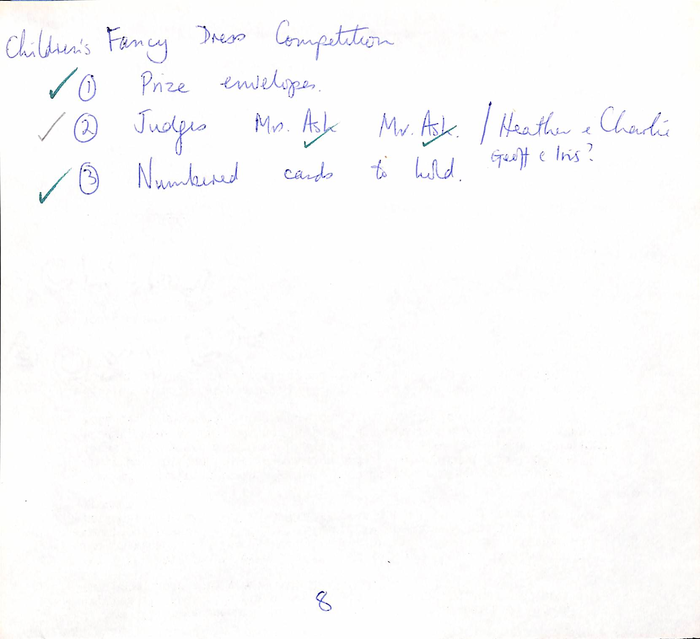 Children's Fancy Dress Competition
✓ ① Prize envelopes.
✓ ② Judges Mrs. Ask ✓ Mr. Ask. ✓ / Heather & Charlie
Geoff & Iris?
✓ ③ Numbered cards to hold.
8